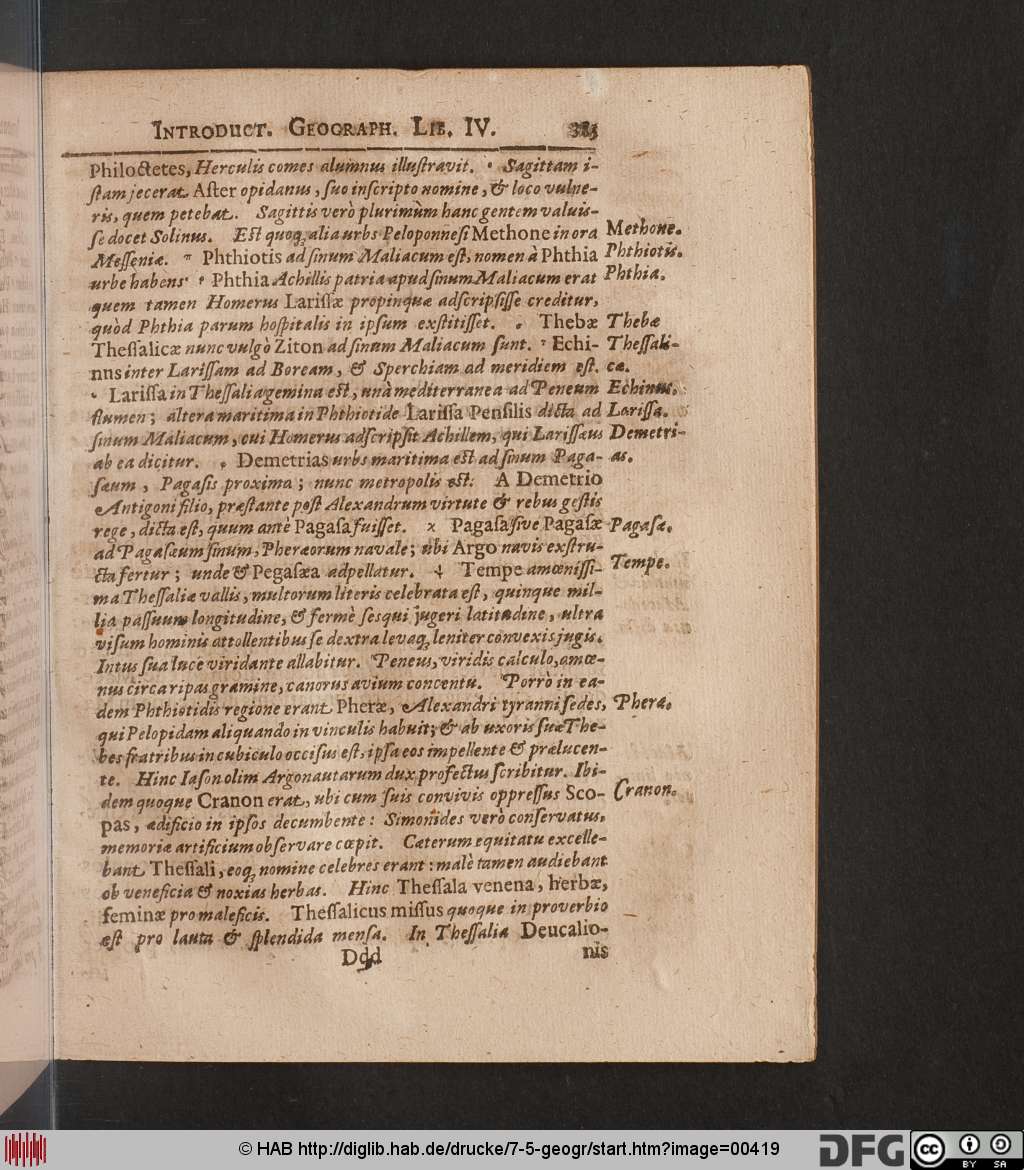 INTRODUCT. GEOGRAPH. LIB. IV. 385
Philoctetes, Herculis comes alumnus illustravit. Sagittam i-
stam jecerat Aster opidanus, suo inscripto nomine, & loco vulne-
ris, quem petebat. Sagittis verò plurimùm hanc gentem valuis-
se docet Solinus. Est quoq; alia urbs Peloponnesi Methone in ora
Messeniæ. Phthiotis ad sinum Maliacum est, nomen à Phthia
urbe habens. Phthia Achillis patria apud sinum Maliacum erat
quem tamen Homerus Larissæ propinquæ adscripsisse creditur,
quòd Phthia parum hospitalis in ipsum exstitisset. Thebæ
Thessalicæ nunc vulgò Ziton ad sinum Maliacum sunt. Echi-
nns inter Larissam ad Boream, & Sperchiam ad meridiem est.
Larissa in Thessalia gemina est, unà mediterranea ad Peneum
flumen; altera maritima in Phthiotide Larissa Pensilis dicta ad
sinum Maliacum, cui Homerus adscripsit Achillem, qui Larissæus
ab ea dicitur. Demetrias urbs maritima est ad sinum Paga-
sæum, Pagasis proxima; nunc metropolis est. A Demetrio
Antigoni filio, præstante post Alexandrum virtute & rebus gestis
rege, dicta est, quum antè Pagasa fuisset. Pagasa sive Pagasæ
ad Pagasæum sinum, Pheræorum navale; ubi Argo navis exstru-
cta fertur; unde & Pegasæa adpellatur. Tempe amœnissi-
ma Thessaliæ vallis, multorum literis celebrata est, quinque mil-
lia passuum longitudine, & fermè sesqui jugeri latitudine, ultra
visum hominis attollentibus se dextra levaq; leniter convexis jugis.
Intus sua luce viridante allabitur. Peneus, viridis calculo, amœ-
nus circa ripas gramine, canorus avium concentu. Porrò in ea-
dem Phthiotidis regione erant Pheræ, Alexandri tyranni sedes,
qui Pelopidam aliquando in vinculis habuit; & ab uxoris suæ The-
bes fratribus in cubiculo occisus est, ipsa eos impellente & prælucen-
te. Hinc Iason olim Argonautarum dux profectus scribitur. Ibi-
dem quoque Cranon erat, ubi cum suis convivis oppressus Sco-
pas, ædificio in ipsos decumbente: Simonides verò conservatus,
memoriæ artificium observare cœpit. Cæterum equitatu excelle-
bant Thessali, eoq; nomine celebres erant: malè tamen audiebant
ob veneficia & noxias herbas. Hinc Thessala venena, herbæ,
feminæ pro maleficis. Thessalicus missus quoque in proverbio
æst pro lauta & splendida mensa. In Thessalia Deucalio-
Ddd nis
Methone.
Phthiotis.
Phthia.
Thebæ
Thessali-
cæ.
Echinus.
Larissa.
Demetri-
as.
Pagasæ.
Tempe.
Pheræ.
Cranon.
© HAB http://diglib.hab.de/drucke/7-5-geogr/start.htm?image=00419
DFG
cc
BY SA